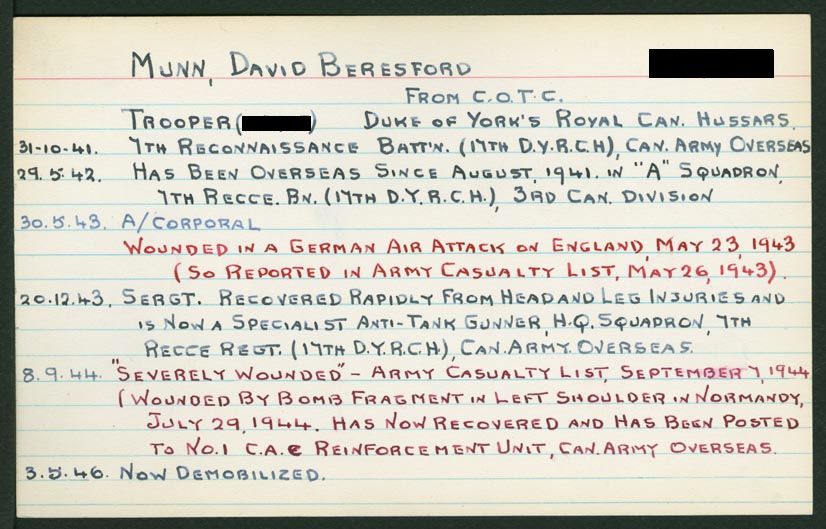 MUNN, DAVID BERESFORD
FROM C.O.T.C.
TROOPER ( ) DUKE OF YORK'S ROYAL CAN. HUSSARS.
31-10-41. 7TH RECONNAISSANCE BATT'N. (17TH D.Y.R.C.H), CAN. ARMY OVERSEAS
29.5.42. HAS BEEN OVERSEAS SINCE AUGUST, 1941. IN "A" SQUADRON,
7TH RECCE. BN. (17TH D.Y.R.C.H.), 3RD CAN. DIVISION
30.5.43. A/CORPORAL
WOUNDED IN A GERMAN AIR ATTACK ON ENGLAND, MAY 23, 1943
(SO REPORTED IN ARMY CASUALTY LIST, MAY 26, 1943).
20.12.43. SERGT. RECOVERED RAPIDLY FROM HEAD AND LEG INJURIES AND
IS NOW A SPECIALIST ANTI-TANK GUNNER, H.Q. SQUADRON, 7TH
RECCE REGT. (17TH D.Y.R.C.H), CAN. ARMY. OVERSEAS.
8.9.44. "SEVERELY WOUNDED" - ARMY CASUALTY LIST, SEPTEMBER 7, 1944
(WOUNDED BY BOMB FRAGMENT IN LEFT SHOULDER IN NORMANDY,
JULY 29, 1944. HAS NOW RECOVERED AND HAS BEEN POSTED
TO NO.1 C.A.C REINFORCEMENT UNIT, CAN. ARMY OVERSEAS.
3.5.46. NOW DEMOBILIZED.